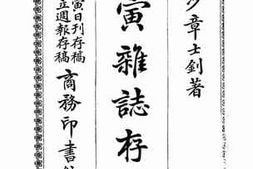 章士釗著
寅雜誌存
寅日刊存稿
立週報存稿
商務印書